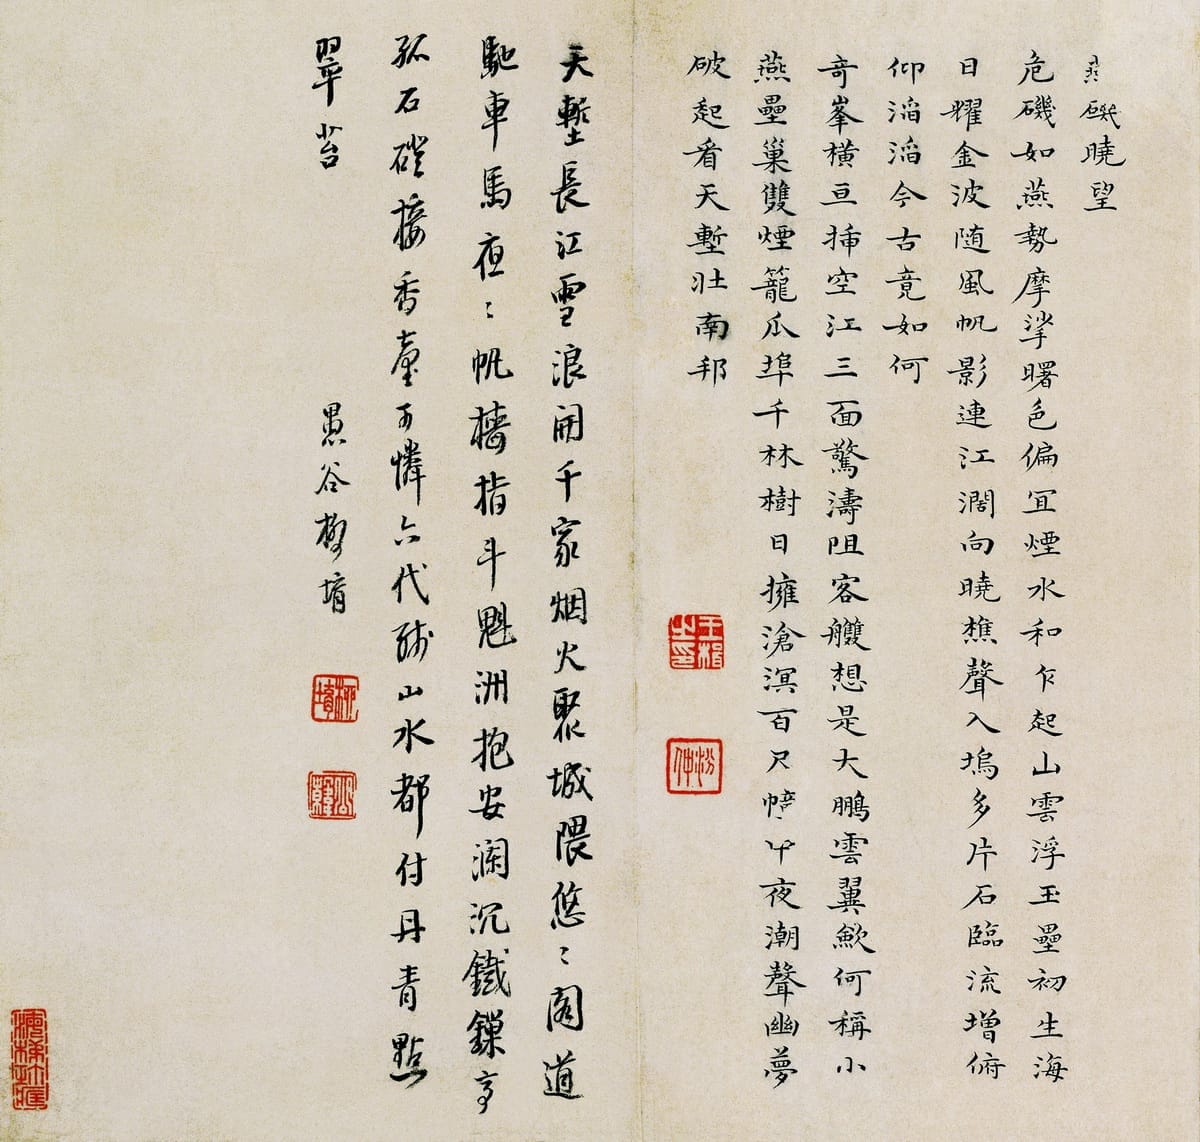 燕磯曉望
危磯如燕勢摩挲曙色偏宜煙水和乍起山雲浮玉壘初生海
日耀金波随風帆影連江濶向曉樵聲入塢多片石臨流增俯
仰滔滔今古竟如何
奇峯橫亘揷空江三面驚濤阻客艭想是大鵬雲翼歛何稱小
燕壘巢雙煙籠瓜埠千林樹日擁滄溟百尺幢中夜潮聲幽夢
破起看天塹壯南邦
王楫之印
汾仲
天塹長江雪浪開千家烟火聚城隈悠〻閣道
馳車馬夜〻帆檣指斗魁洲抱安瀾沉鐵鏁亭
孤石磴接香臺可憐六代殘山水都付丹青點
翠苔
愚谷柳堉
柳堉